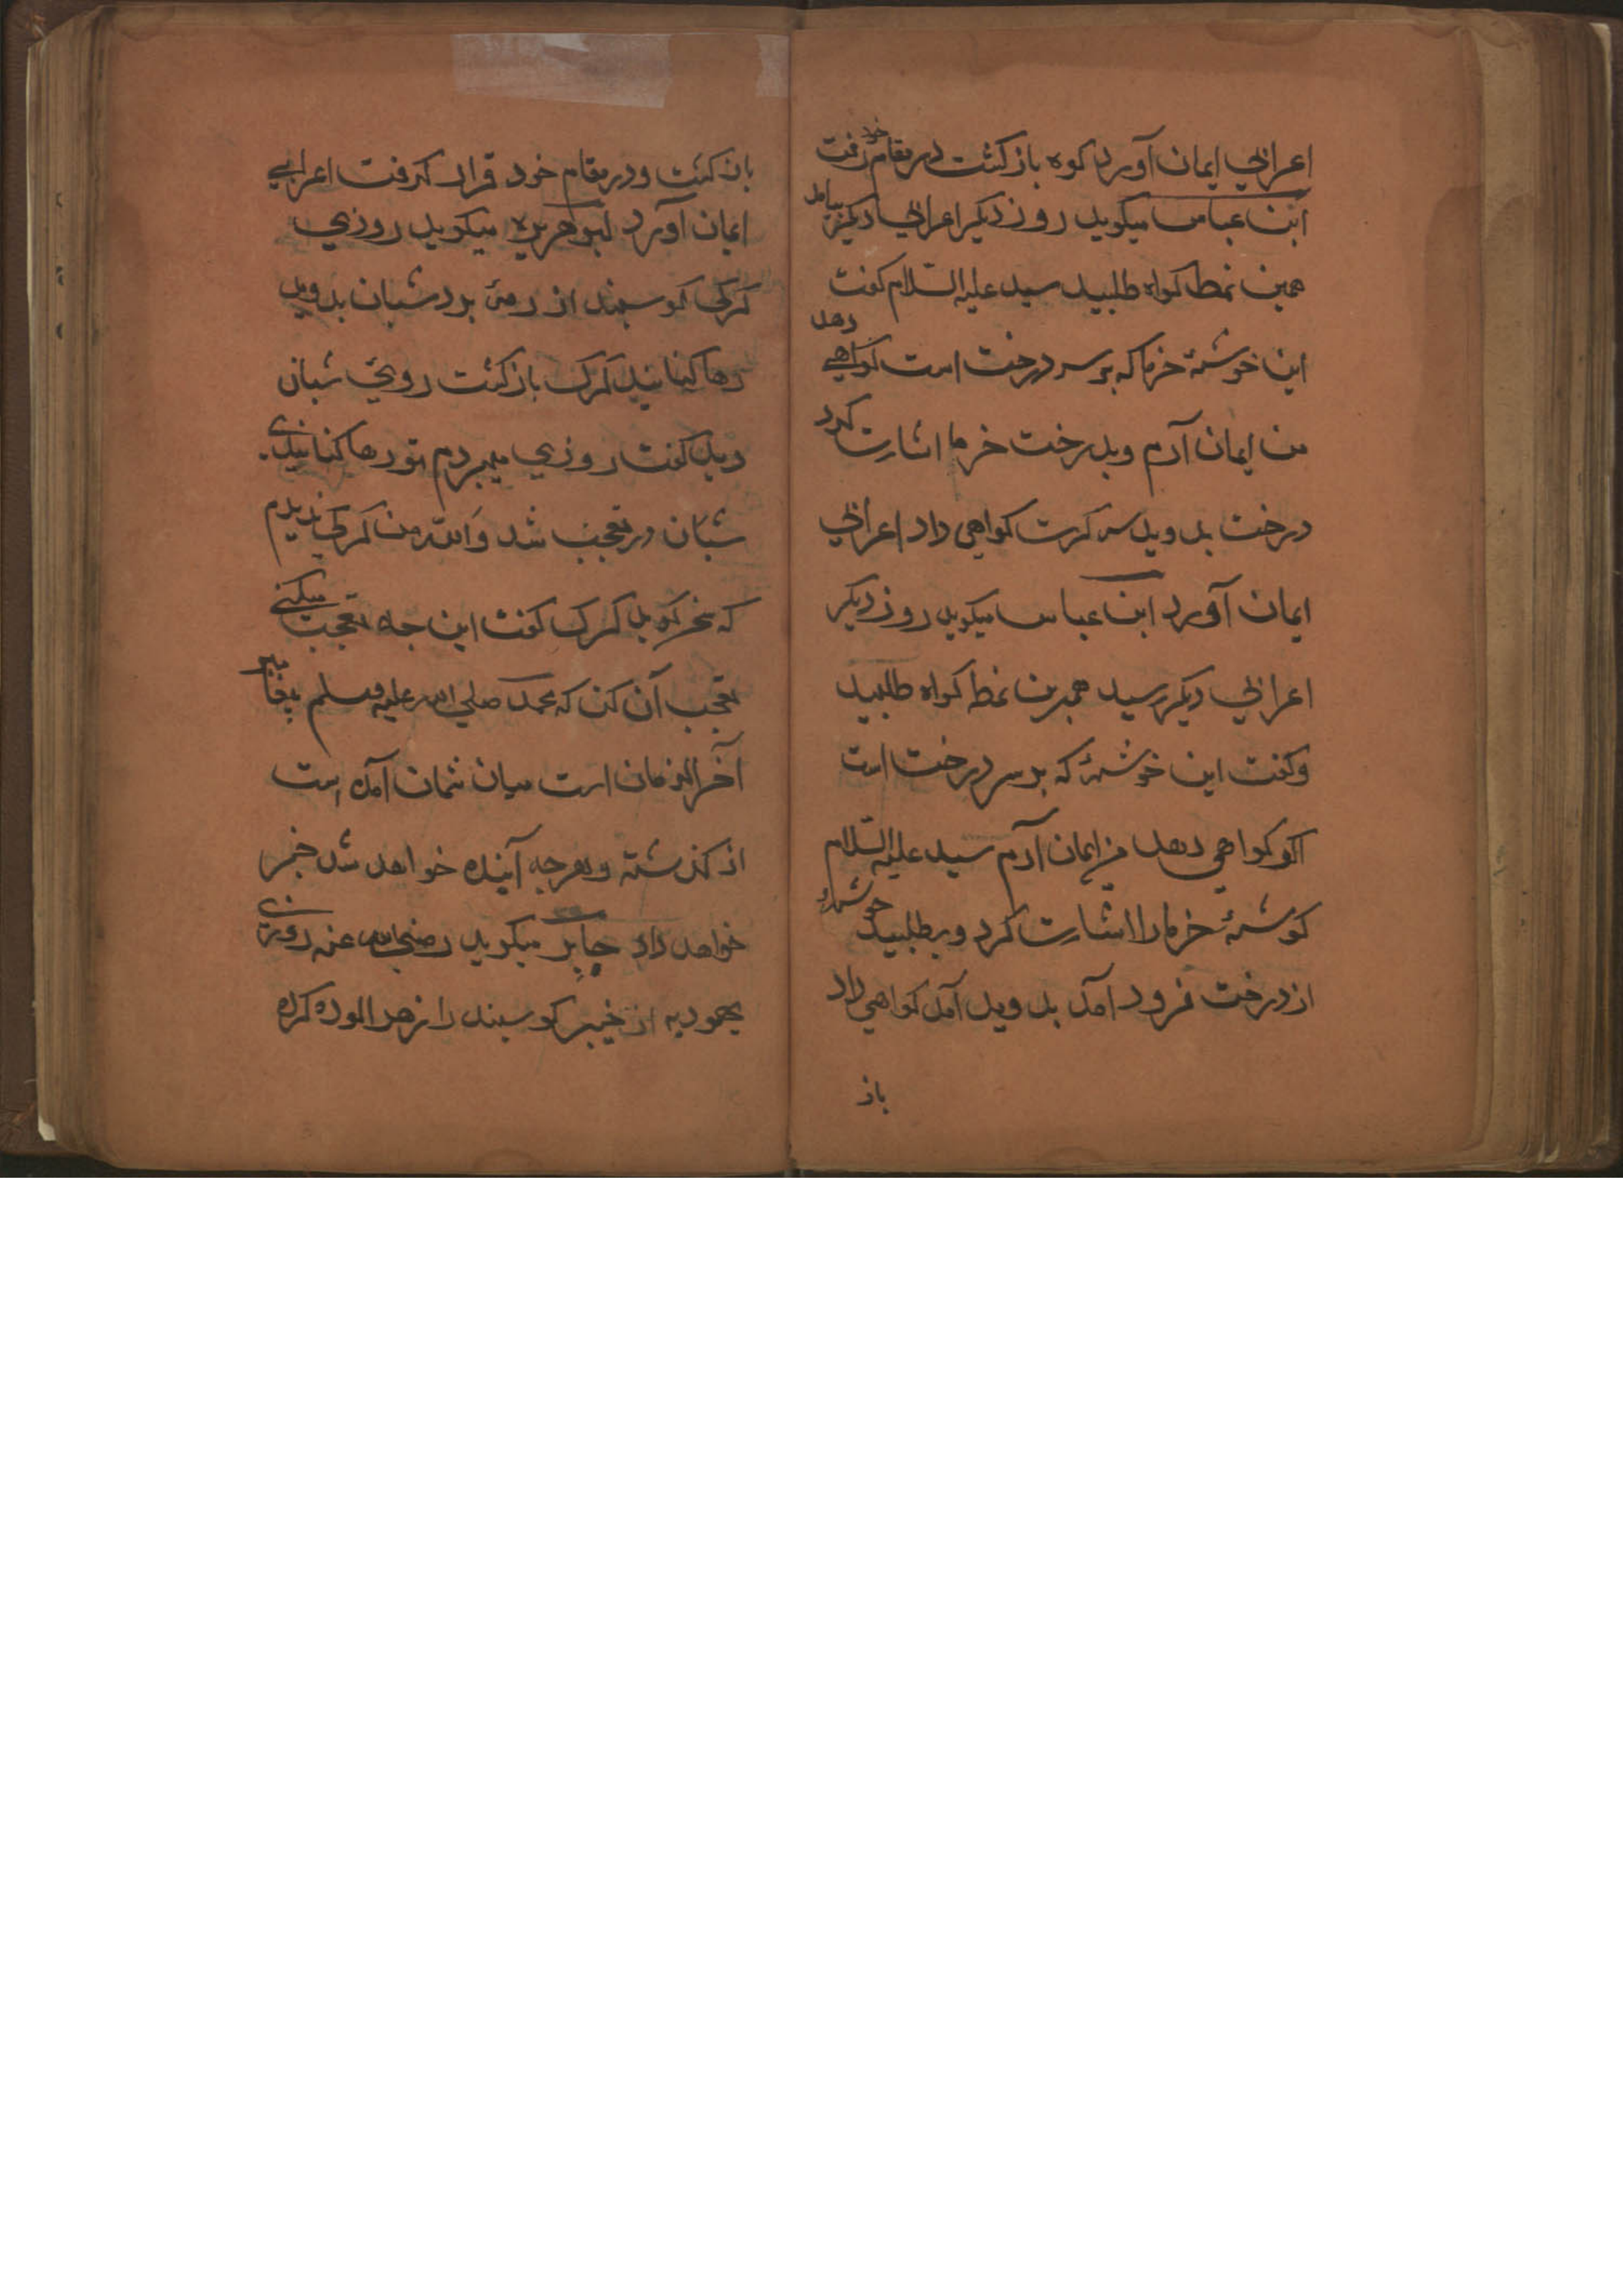 اعرابي ايمان آورد كوه باز كشت در مقام خود رفت
ابن عباس ميكويد روز ديكر اعرابي ديكر بيامد
همين نمط كواه طلبيد سيد عليه السلام كفت
اين خوشهٔ خرما كه بر سر درخت است كواهي دهد
من ايمان آرم وبدرخت خرما اشارت كرد
درخت بدويد سه كرت كواهي داد اعرابي
ايمان آورد ابن عباس ميكويد روز ديكر
اعرابي ديكر رسيد همبرين نمط كواه طلبيد
وكفت اين خوشهٔ كه بر سر درخت است
اكر كواهي دهد من ايمان آرم سيد عليه السلام
خرما را اشارت كرد وبطلبيد خوشهٔ
از درخت فرود آمد بدويد آمد كواهي داد
باز
باز كشت ودر مقام خود قرار كرفت اعرابي
ايمان آورد ابوهريره ميكويد روزي
كركي كوسپند از رمهٔ برد شبان بدويد
رها كنانيد كرك باز كشت روي شبان
ديد كفت روزي ميبردم تو رها كنانيدي
شبان در تعجب شد والله من كركي نديدم
كه سخن كويد كرك كفت اين چه تعجب ميكني
تعجب آن كن كه محمد صلي الله عليه وسلم پيغامبر
آخر الزمان است ميان شمان آمده است
از كذشته وهرچه آينده خواهد شد خبر
خواهد داد جابر ميكويد رضي الله عنه روزي
يهوديه از خيبر كوسپند را زهر الوده كرده